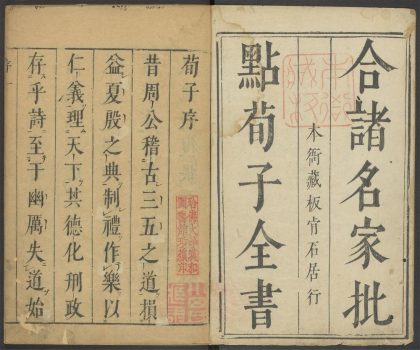 合諸名家批
點荀子全書
本衙藏板官石居行
荀子序
昔周公稽古三五之道損
益夏殷之典制禮作樂以
仁義理天下其德化刑政
存乎詩至于幽厲失道始
序